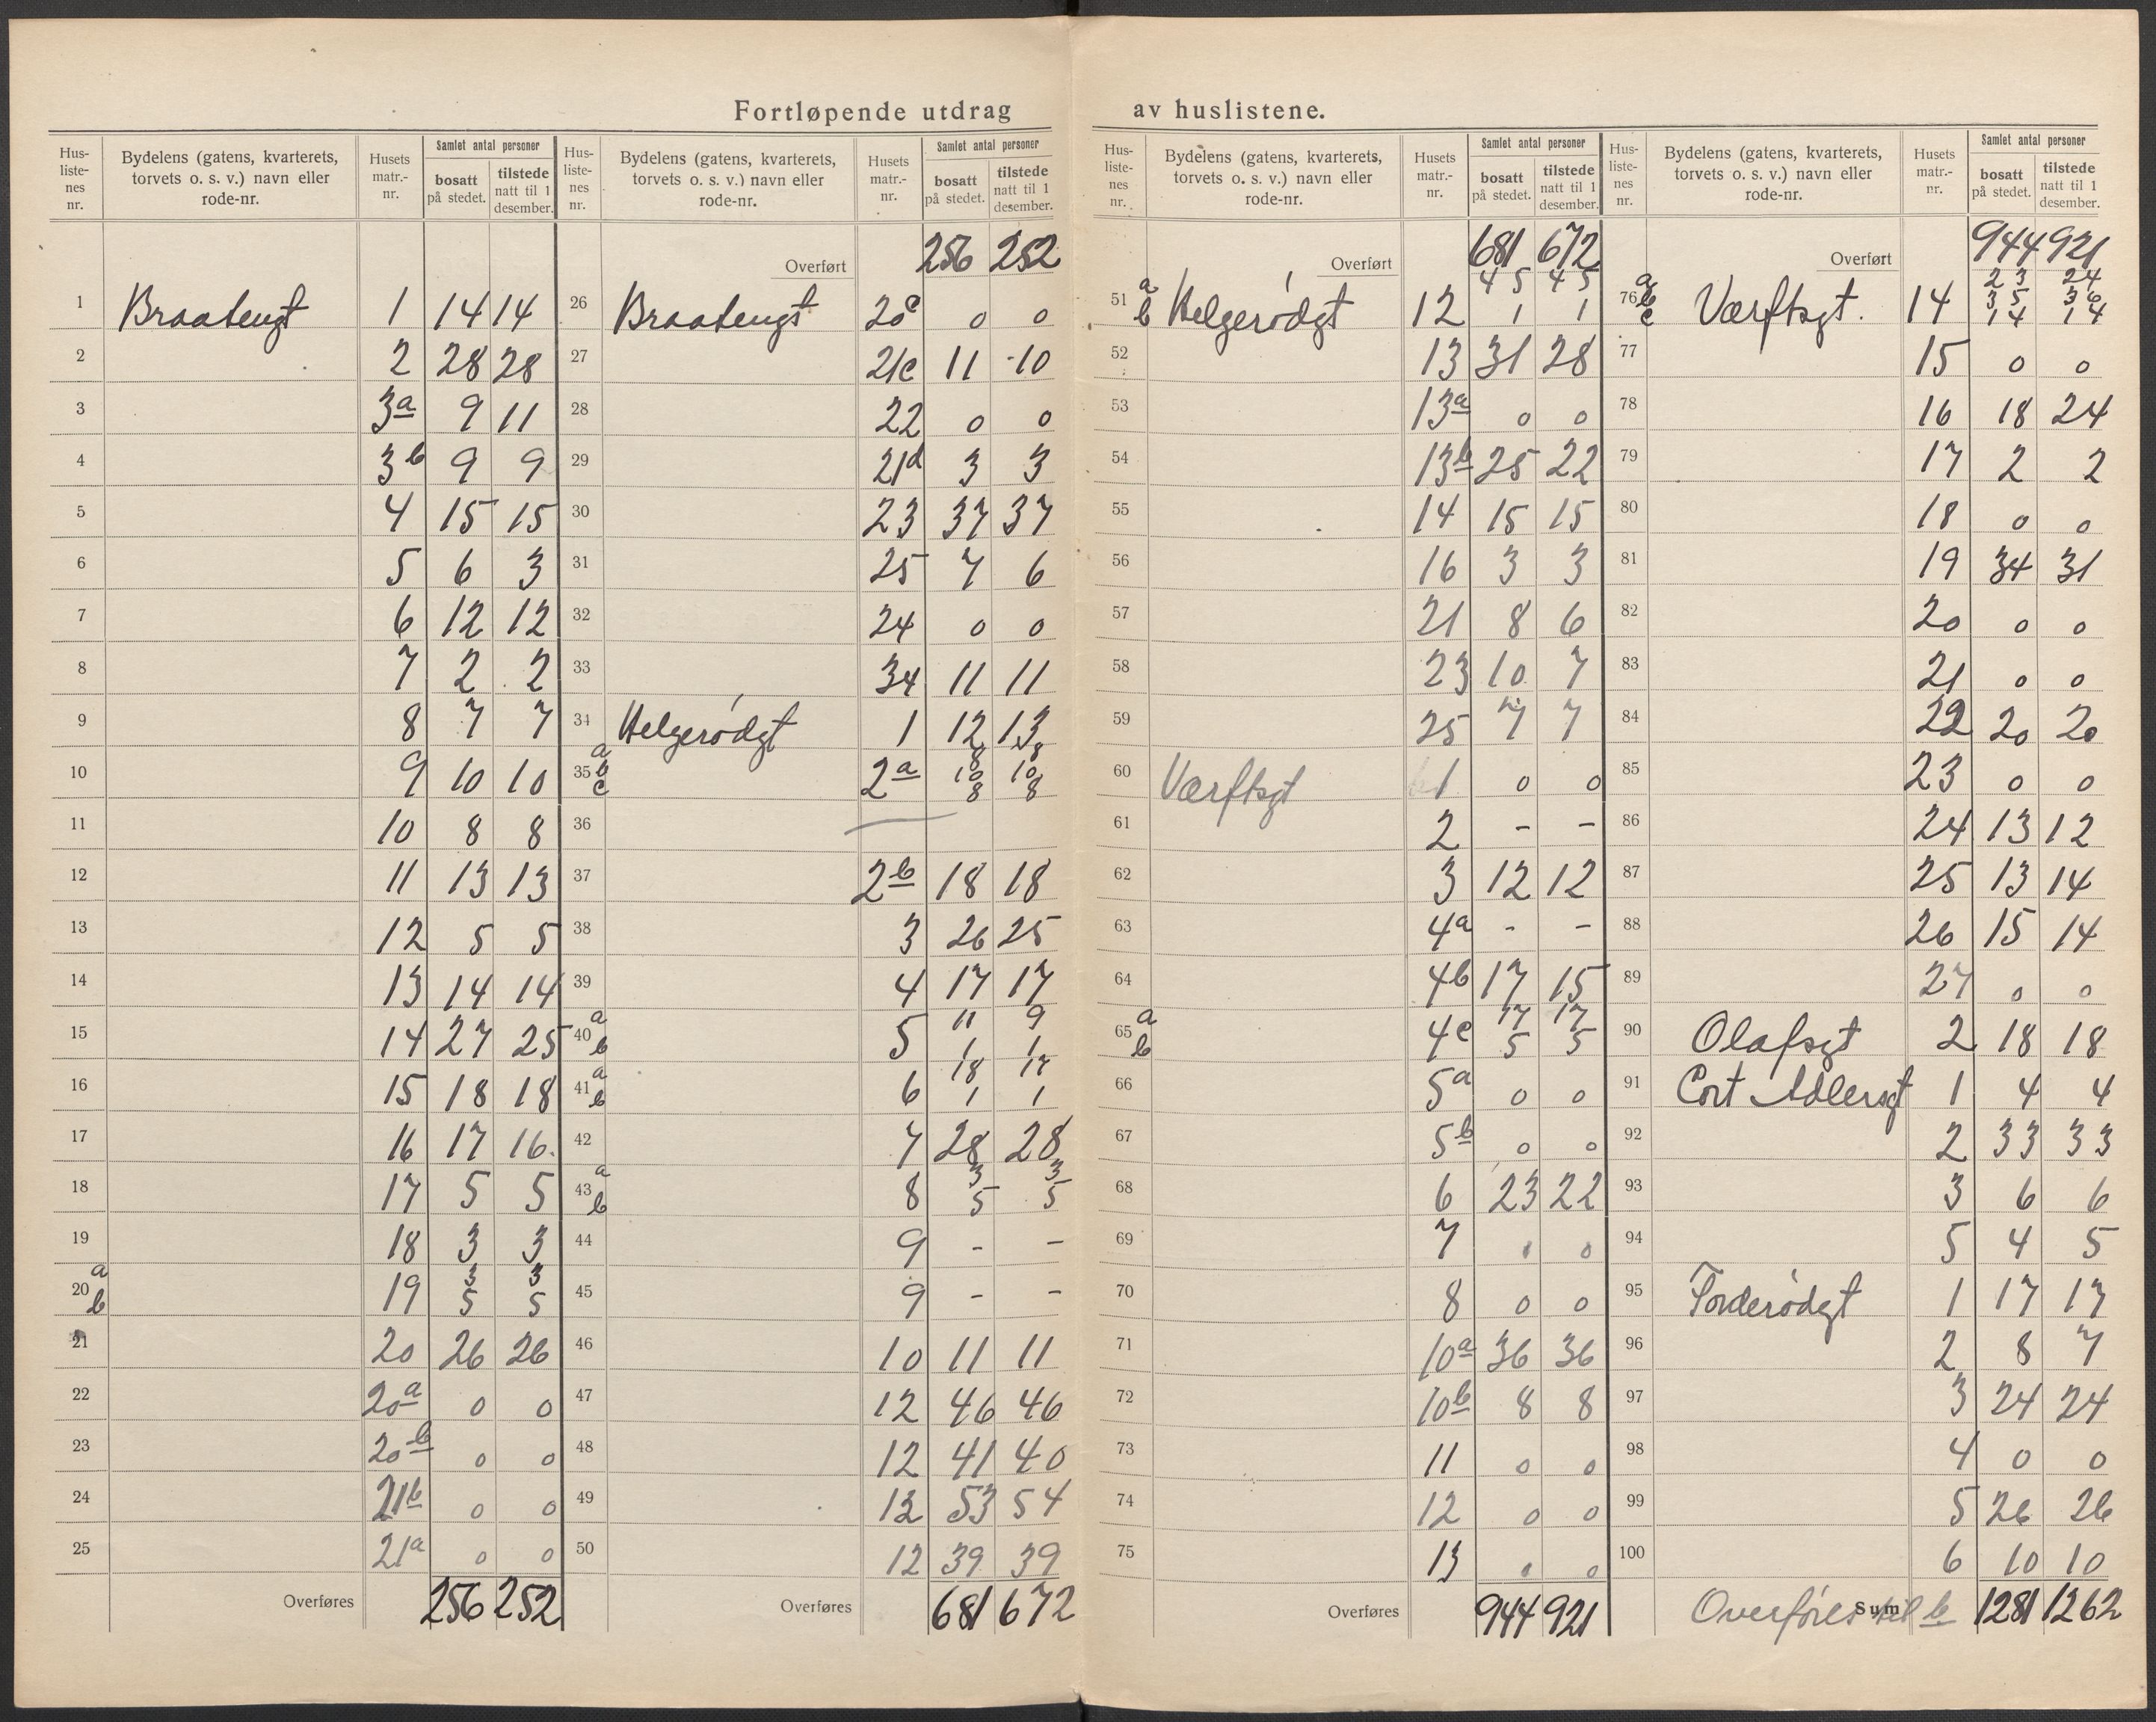 Fortløpende utdrag av huslistene.
Hus-listenes nr. | Bydelens (gatens, kvarterets, torvets o. s. v.) navn eller rode-nr. | Husets matr.-nr. | Samlet antal personer bosatt på stedet. | tilstede natt til 1 desember.
1 Braatengt 1 14 14
2 2 28 28
3 3a 9 11
4 3b 9 9
5 4 15 15
6 5 6 3
7 6 12 12
8 7 2 2
9 8 7 7
10 9 10 10
11 10 8 8
12 11 13 13
13 12 5 5
14 13 14 14
15 14 27 25
16 15 18 18
17 16 17 16.
18 17 5 5
19 18 3 3
20 a 19 3 3
b 5 5
21 20 26 26
22 20a 0 0
23 20b 0 0
24 21b 0 0
25 21a 0 0
Overføres 256 252
Hus-listenes nr. | Bydelens (gatens, kvarterets, torvets o. s. v.) navn eller rode-nr. | Husets matr.-nr. | Samlet antal personer bosatt på stedet. | tilstede natt til 1 desember.
Overført 256 252
26 Braatengt 20c 0 0
27 21c 11 10
28 22 0 0
29 21d 3 3
30 23 37 37
31 25 7 6
32 24 0 0
33 34 11 11
34 Helgerødgt 1 12 13
35 a 2a 8 8
b 10 10
c 8 8
36
37 2b 18 18
38 3 26 25
39 4 17 17
40 a 5 11 9
b 1 1
41 a 6 18 17
b 1 1
42 7 28 28
43 a 8 3 3
b 5 5
44 9 - -
45 9 - -
46 10 11 11
47 12 46 46
48 12 41 40
49 12 53 54
50 12 39 39
Overføres 681 672
Hus-listenes nr. | Bydelens (gatens, kvarterets, torvets o. s. v.) navn eller rode-nr. | Husets matr.-nr. | Samlet antal personer bosatt på stedet. | tilstede natt til 1 desember.
Overført 681 672
51 a Helgerødgt 12 45 45
b 1 1
52 13 31 28
53 13a 0 0
54 13b 25 22
55 14 15 15
56 16 3 3
57 21 8 6
58 23 10 7
59 25 7 7
60 Værftsgt 1 0 0
61 2 - -
62 3 12 12
63 4a - -
64 4b 17 15
65 a 4c 17 17
b 5 5
66 5a 0 0
67 5b 0 0
68 6 23 22
69 7 0 0
70 8 0 0
71 10a 36 36
72 10b 8 8
73 11 0 0
74 12 0 0
75 13 0 0
Overføres 944 921
Hus-listenes nr. | Bydelens (gatens, kvarterets, torvets o. s. v.) navn eller rode-nr. | Husets matr.-nr. | Samlet antal personer bosatt på stedet. | tilstede natt til 1 desember.
Overført 944 921
76 a Værftsgt. 14 23 24
b 35 36
c 14 14
77 15 0 0
78 16 18 24
79 17 2 2
80 18 0 0
81 19 34 31
82 20 0 0
83 21 0 0
84 22 20 20
85 23 0 0
86 24 13 12
87 25 13 14
88 26 15 14
89 27 0 0
90 Olafsgt 2 18 18
91 Cort Adlersgt 1 4 4
92 2 33 33
93 3 6 6
94 5 4 5
95 Torderødgt 1 17 17
96 2 8 7
97 3 24 24
98 4 0 0
99 5 26 26
100 6 10 10
Overføres til b Sum 1281 1262